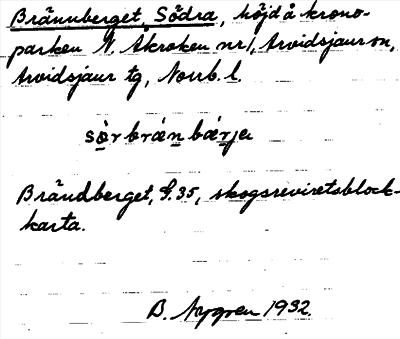 Brännberget, Södra, höjd å krono-
parken N. Åkroken nr 1, Arvidsjaur sn,
Arvidsjaur tg, Norrb. l.
sò̱rbráṉbǽṟja
Brändberget, S. 35, skogsreviretsblock-
karta.
B. Nygren 1932.